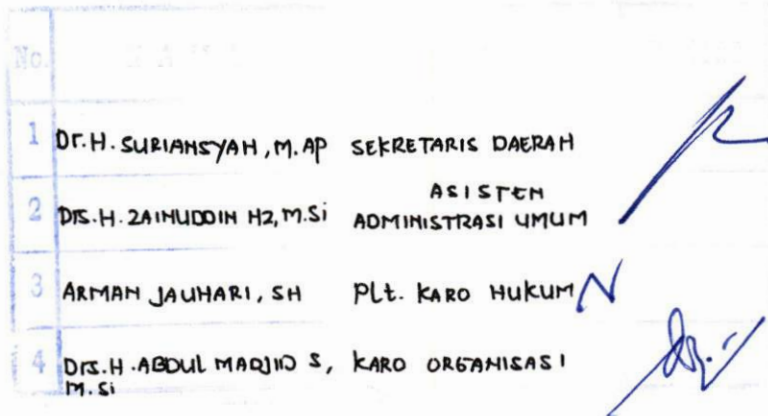 No.
1 Dr. H. SURIANSYAH, M. AP SEKRETARIS DAERAH
2 Drs. H. ZAINUDDIN HZ, M.Si ASISTEN
ADMINISTRASI UMUM
3 ARMAN JAUHARI, SH Plt. KARO HUKUM
4 Drs. H. ABDUL MADJID S, KARO ORGANISASI
M. Si